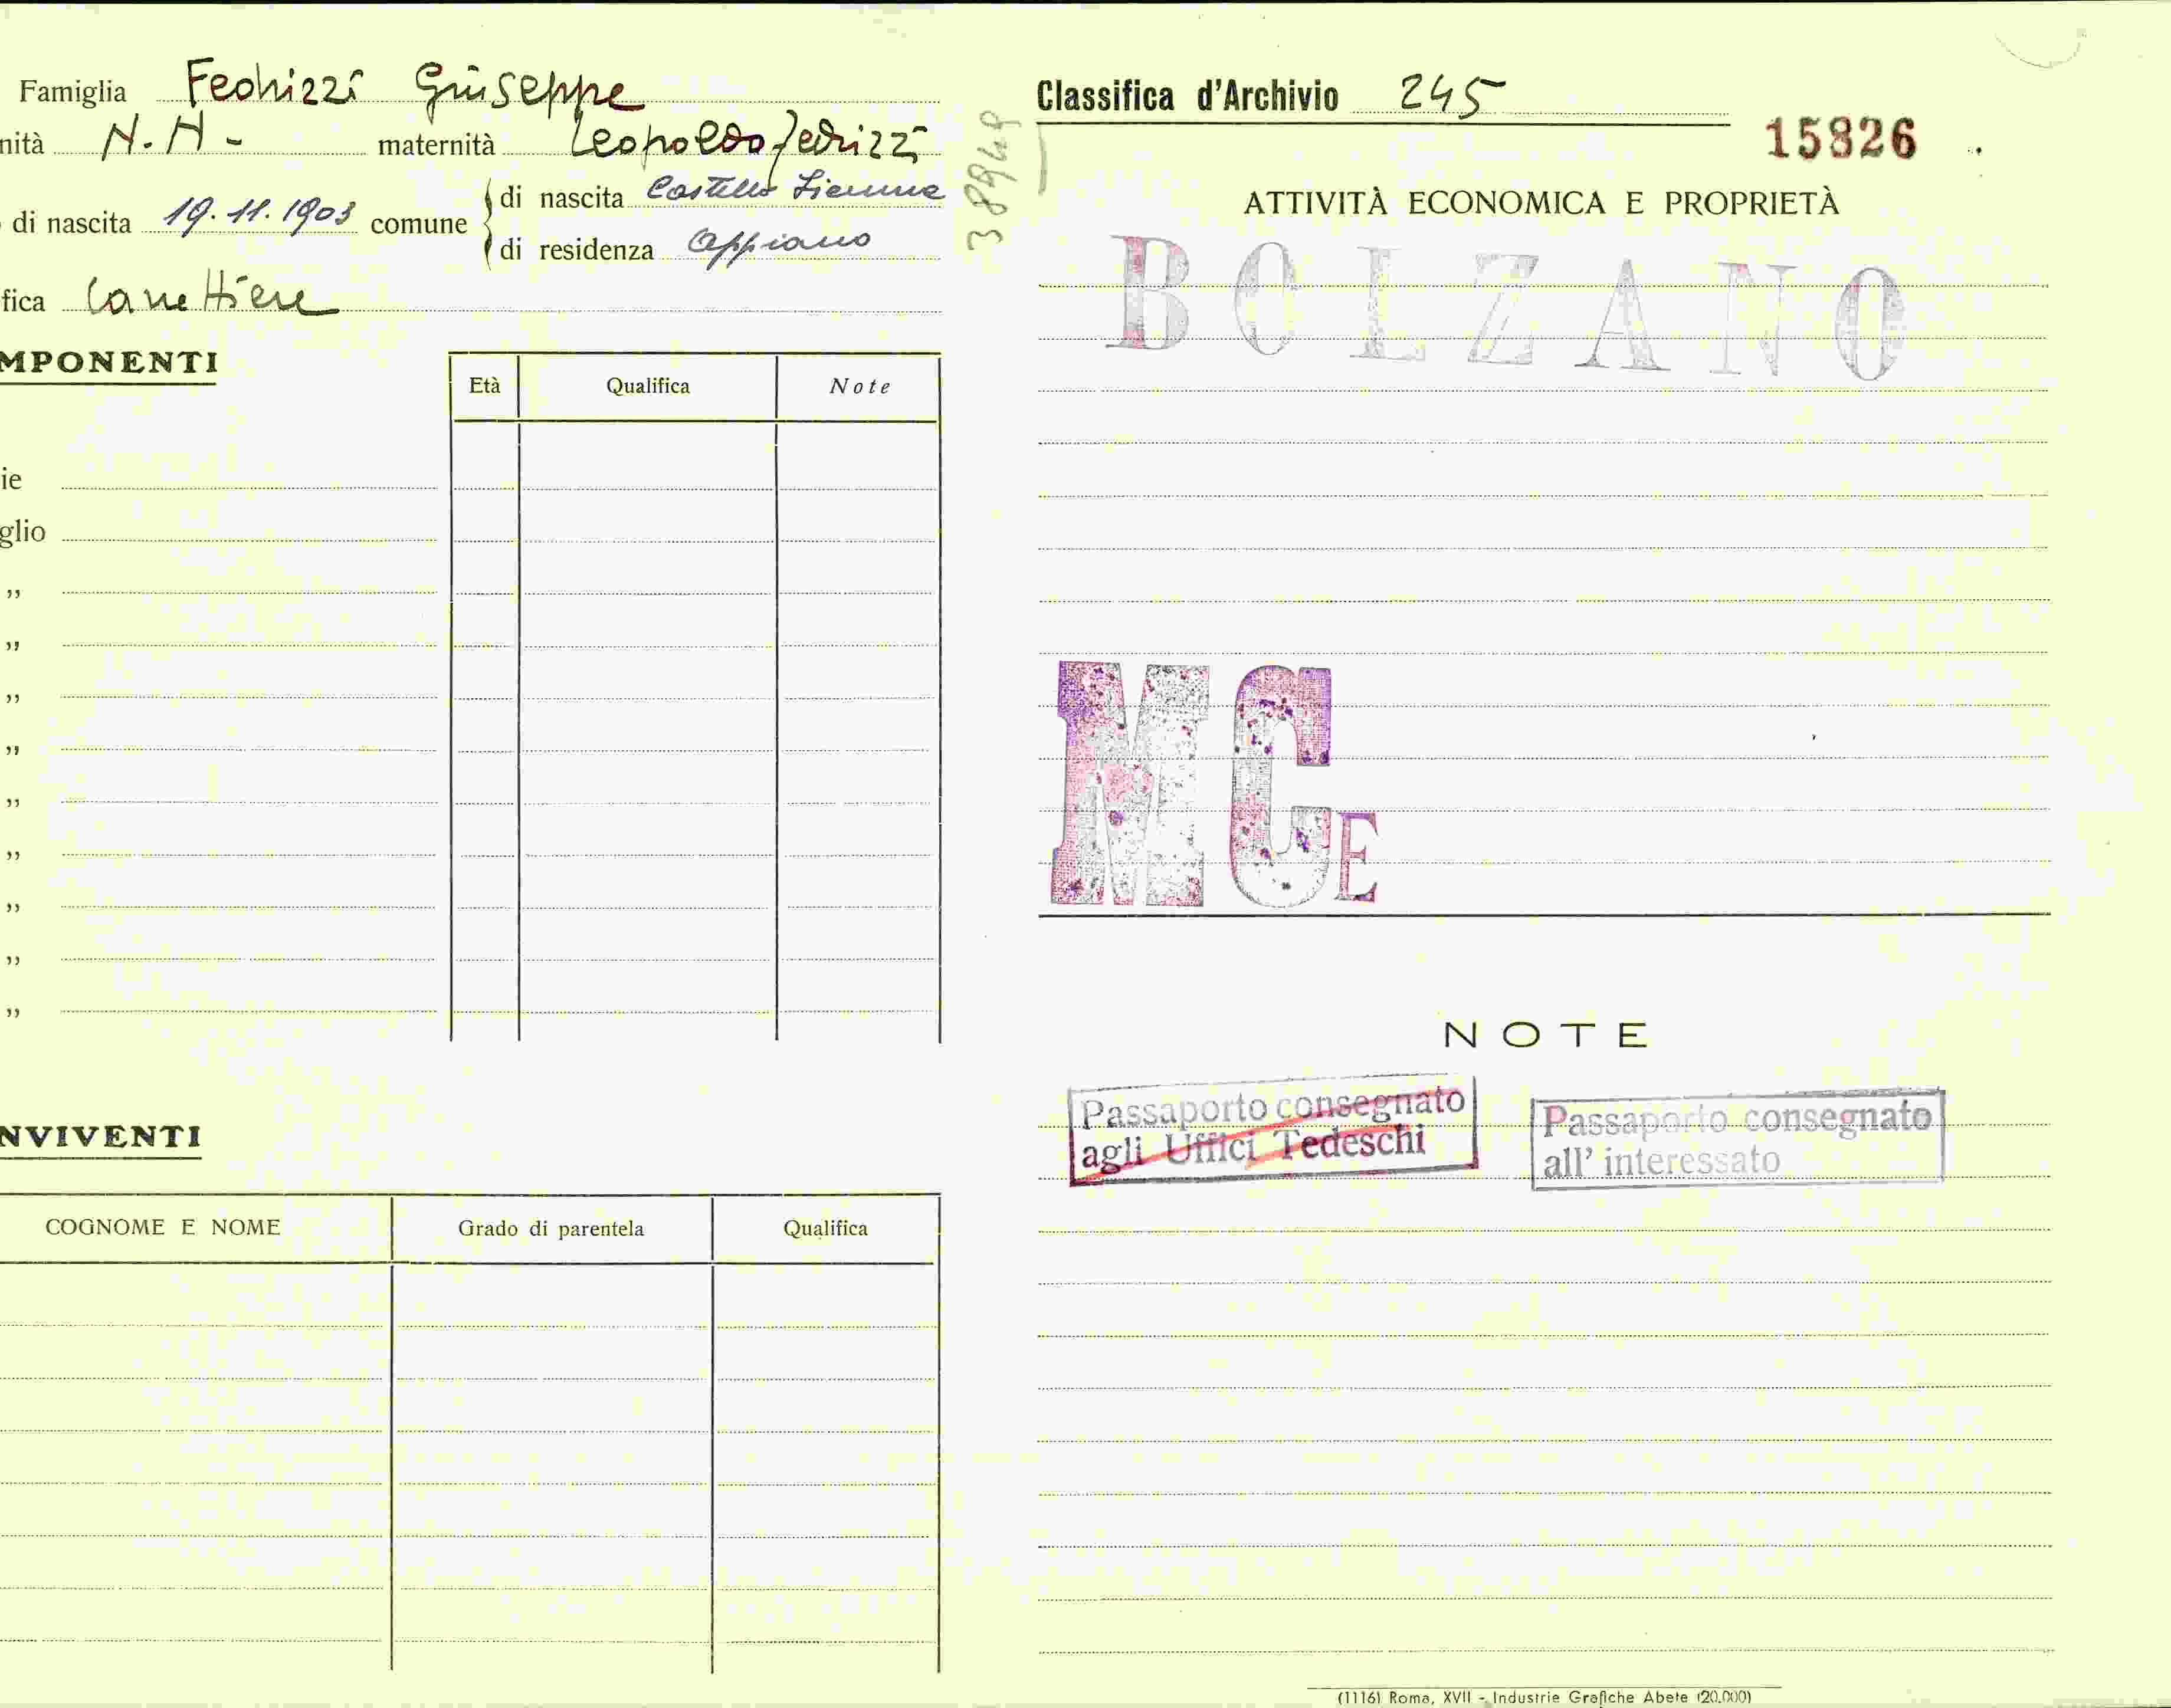 Famiglia Fedrizzi Giuseppe
nità N. N. - maternità Leopolda Fedrizzi
di nascita 19.11.1903 comune
di nascita Castello
di residenza Appiano
fica Carrettiere
MPONENTI
Età Qualifica Note
ie
glio
„
„
„
„
„
„
„
„
„
NVIVENTI
COGNOME E NOME Grado di parentela Qualifica
38949
Classifica d'Archivio 245
15826
ATTIVITÀ ECONOMICA E PROPRIETÀ
BOLZANO
MCE
NOTE
Passaporto consegnato
agli Uffici Tedeschi
Passaporto consegnato
all' interessato
(11161 Roma, XVII - Industrie Grafiche Abete (20.000)